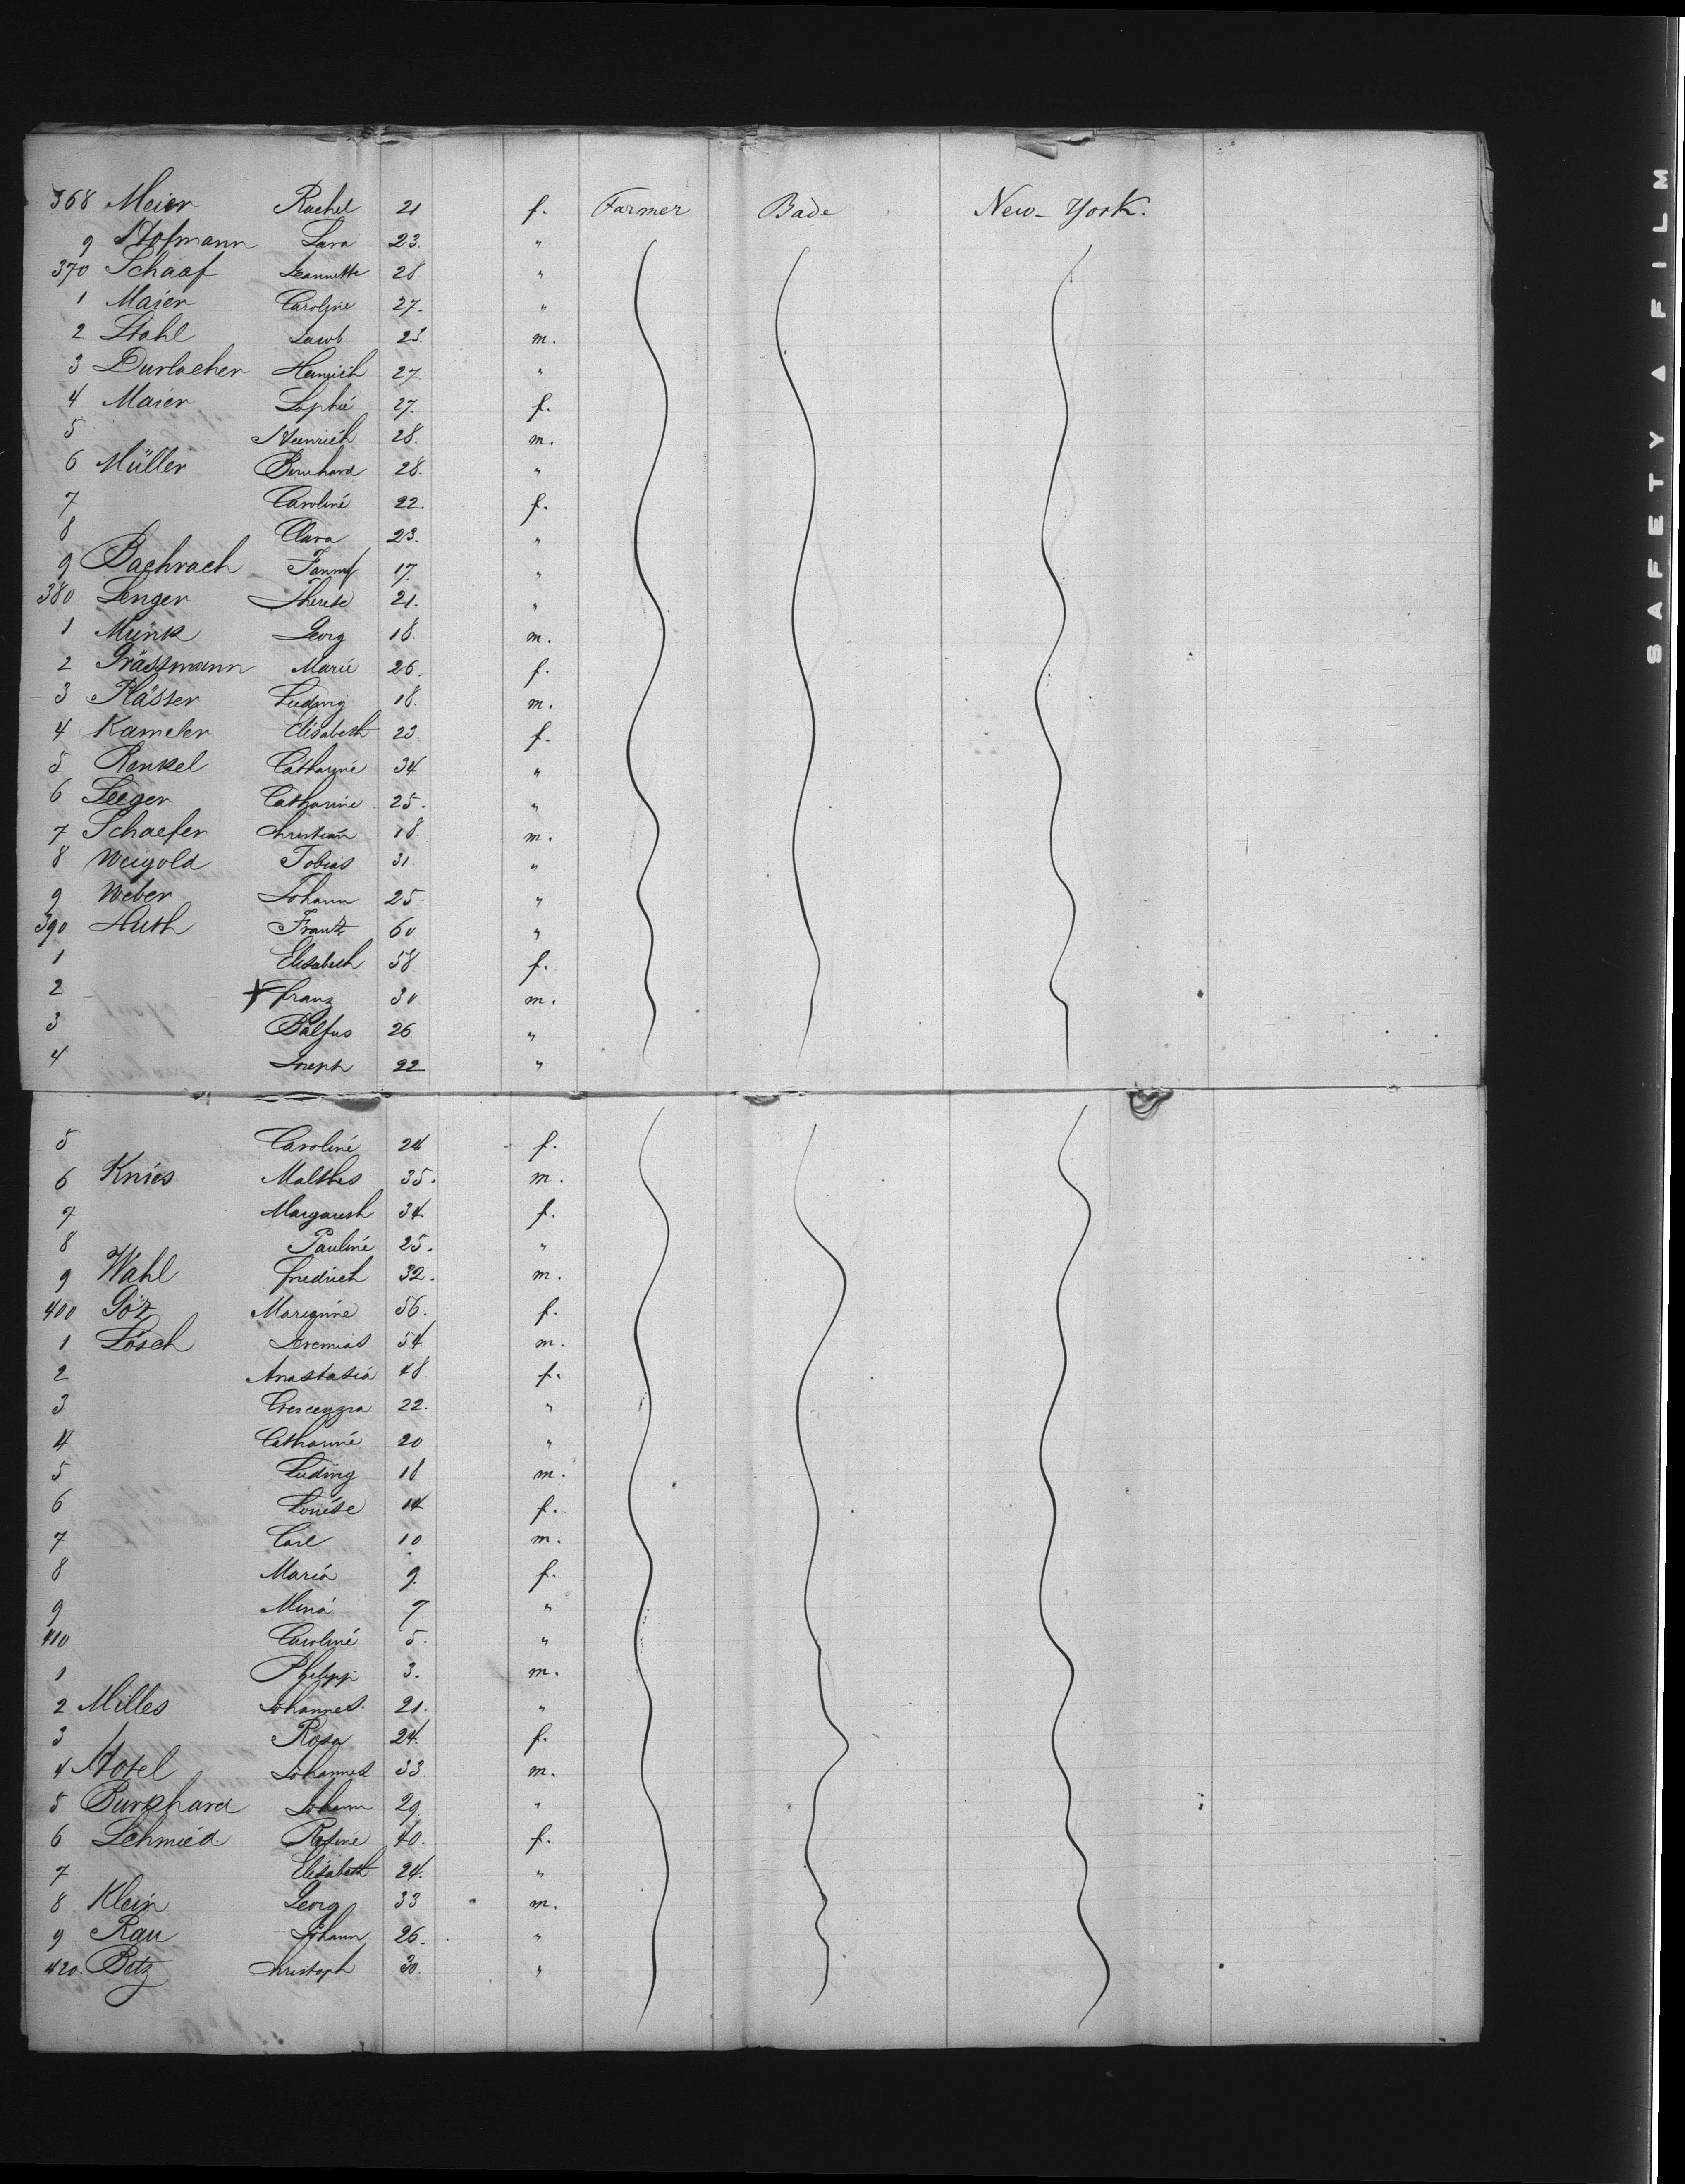 368 Meier Rachel 21 f. Farmer Bade New-York.
9 Hofmann Sara 23. "
370 Schaaf Jeannette 28 "
1 Maier Caroline 27. "
2 Stahl Jacob 23. m.
3 Durlacher Heinrich 27 "
4 Maier Sophie 27. f.
5 Heinrich 28. m.
6 Müller Bernhard 28. "
7 Caroline 22 f.
8 Clara 23. "
9 Bachrach Fanny 17. "
380 Senger Therese 21. "
1 Münk Georg 18. m.
2 Grässmann Marie 26. f.
3 Ludwig 18. m.
4 Kameler Elisabeth 23. f.
5 Renkel Catharine 34 "
6 Seeger Catharine 25. "
7 Schaefer Christian 18. m.
8 Weigold Tobias 31 "
9 Weber Johann 25. "
390 Huth Frantz 60 "
1 Elisabeth 58 f.
2 Franz 30 m.
3 26. "
4 Joseph 22 "
5 Caroline 24 f.
6 Knies Malthes 35. m.
7 Margareth 34 f.
8 Pauline 25. "
9 Wahl Friedrich 32. m.
400 Göz 56. f.
1 Lösch Jeremias 54. m.
2 Anastasia 48. f.
3 Crescenzia 22. "
4 Catharine 20 "
5 Ludwig 18 m.
6 Louise 14 f.
7 Carl 10. m.
8 Maria 9. f.
9 Mina 7 "
410 Caroline 5. "
1 Philipp 3. m.
2 Milles Johannes. 21. "
3 Rosa 24. f.
4 Johannes 33. m.
5 Burkhard Johann 29. "
6 Schmied Rosine 40. f.
7 Elisabeth 24. "
8 Klein Georg 33 m.
9 Rau Johann 26. "
420. Betz Christoph 30. "
SAFETY A FILM